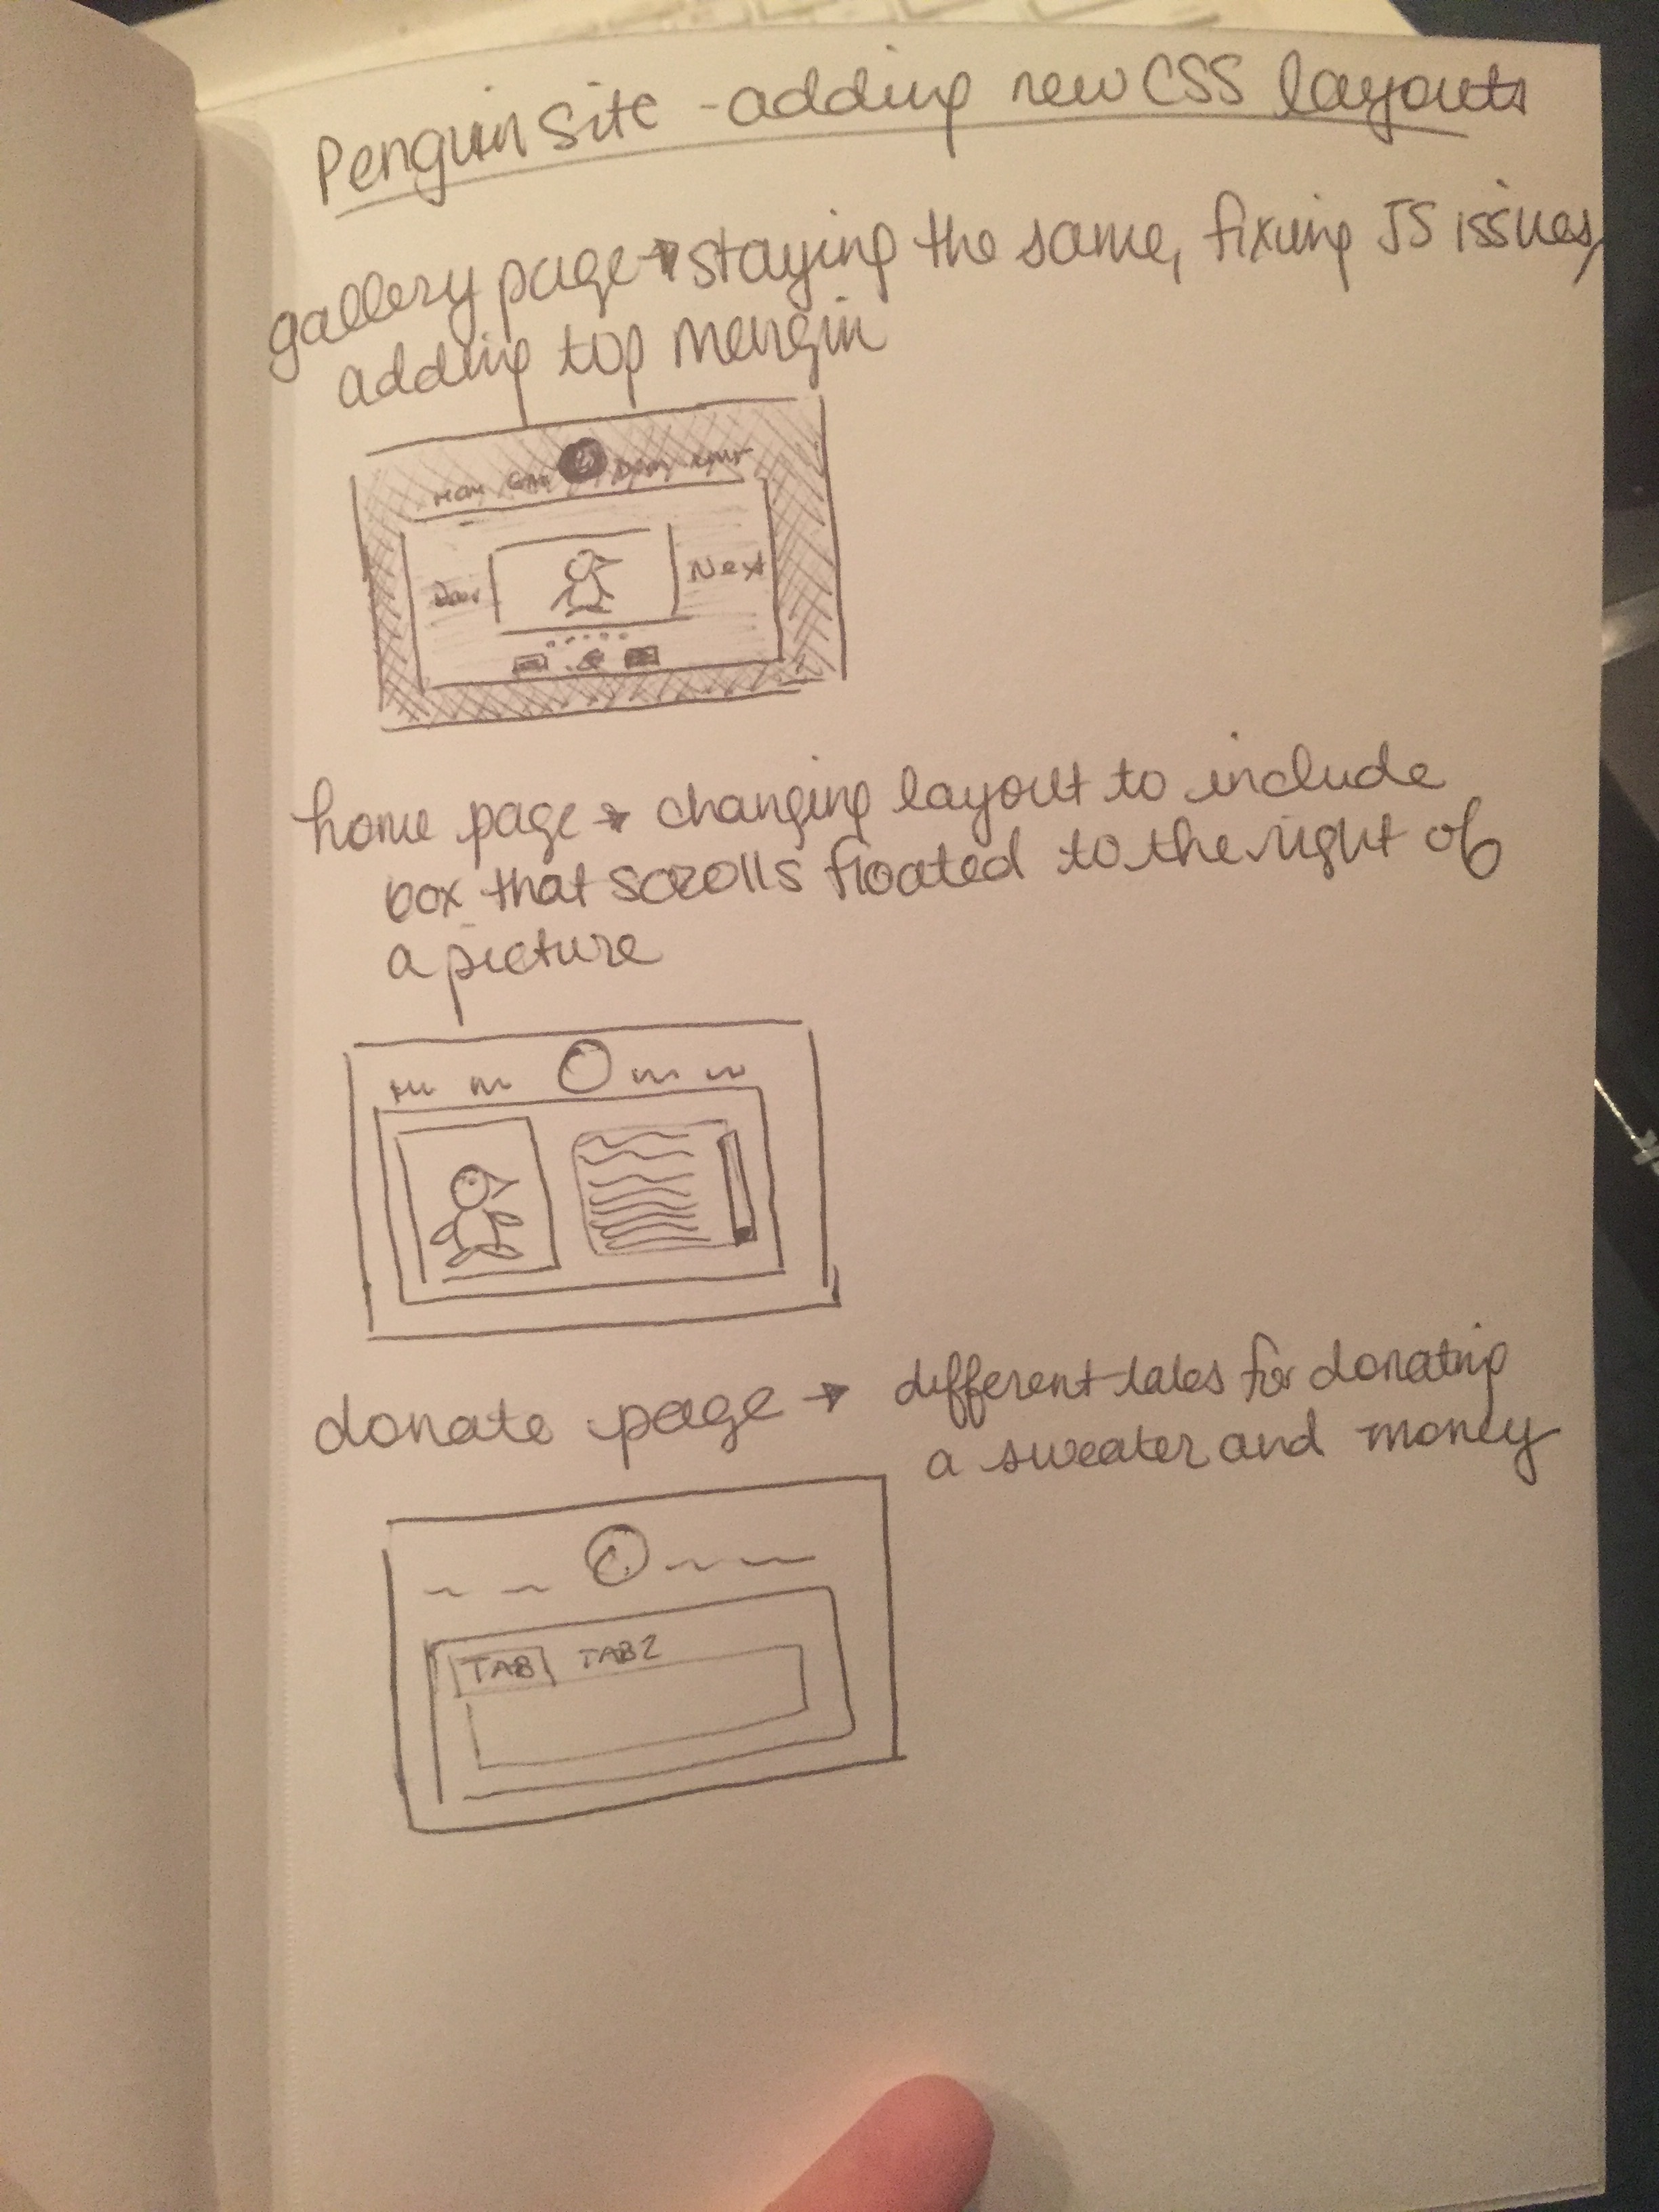 Penguin Site - adding new CSS layouts
gallery page → staying the same, fixing JS issues,
adding top margin
Next
home page → changing layout to include
box that scrolls floated to the right of
a picture
donate page → different tabs for donating
a sweater and money
TAB1 TAB2